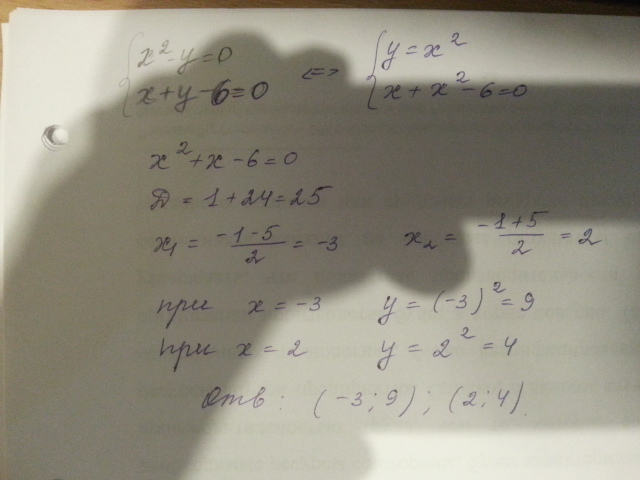 { x² - y = 0 <=> { y = x²
x + y - 6 = 0 x + x² - 6 = 0
x² + x - 6 = 0
D = 1 + 24 = 25
x₁ = (-1-5)/2 = -3 x₂ = (-1+5)/2 = 2
при x = -3 y = (-3)² = 9
при x = 2 y = 2² = 4
Отв: (-3; 9); (2; 4)